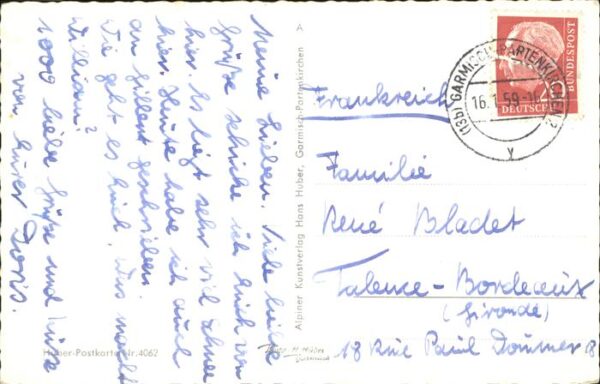 Meine Lieben. Viele liebe
Grüße schicke ich Euch von
hier. Es liegt sehr viel Schnee
hier. Heute habe ich auch
an Gilbert geschrieben.
Wie geht es Euch. Was macht
William?
1000 liebe Grüße und Küsse
von Eurer Doris.
A
Alpiner Kunstverlag Hans Huber, Garmisch-Partenkirchen
Huber-Postkarte Nr. 4062
(13b) GARMISCH-PARTENKIRCHEN 2
16.1.59
y
20
DEUTSCHE
BUNDESPOST
Frankreich
Familie
René Bladet
Talence-Bordeaux
(Gironde)
18 Rue Paul Doumer